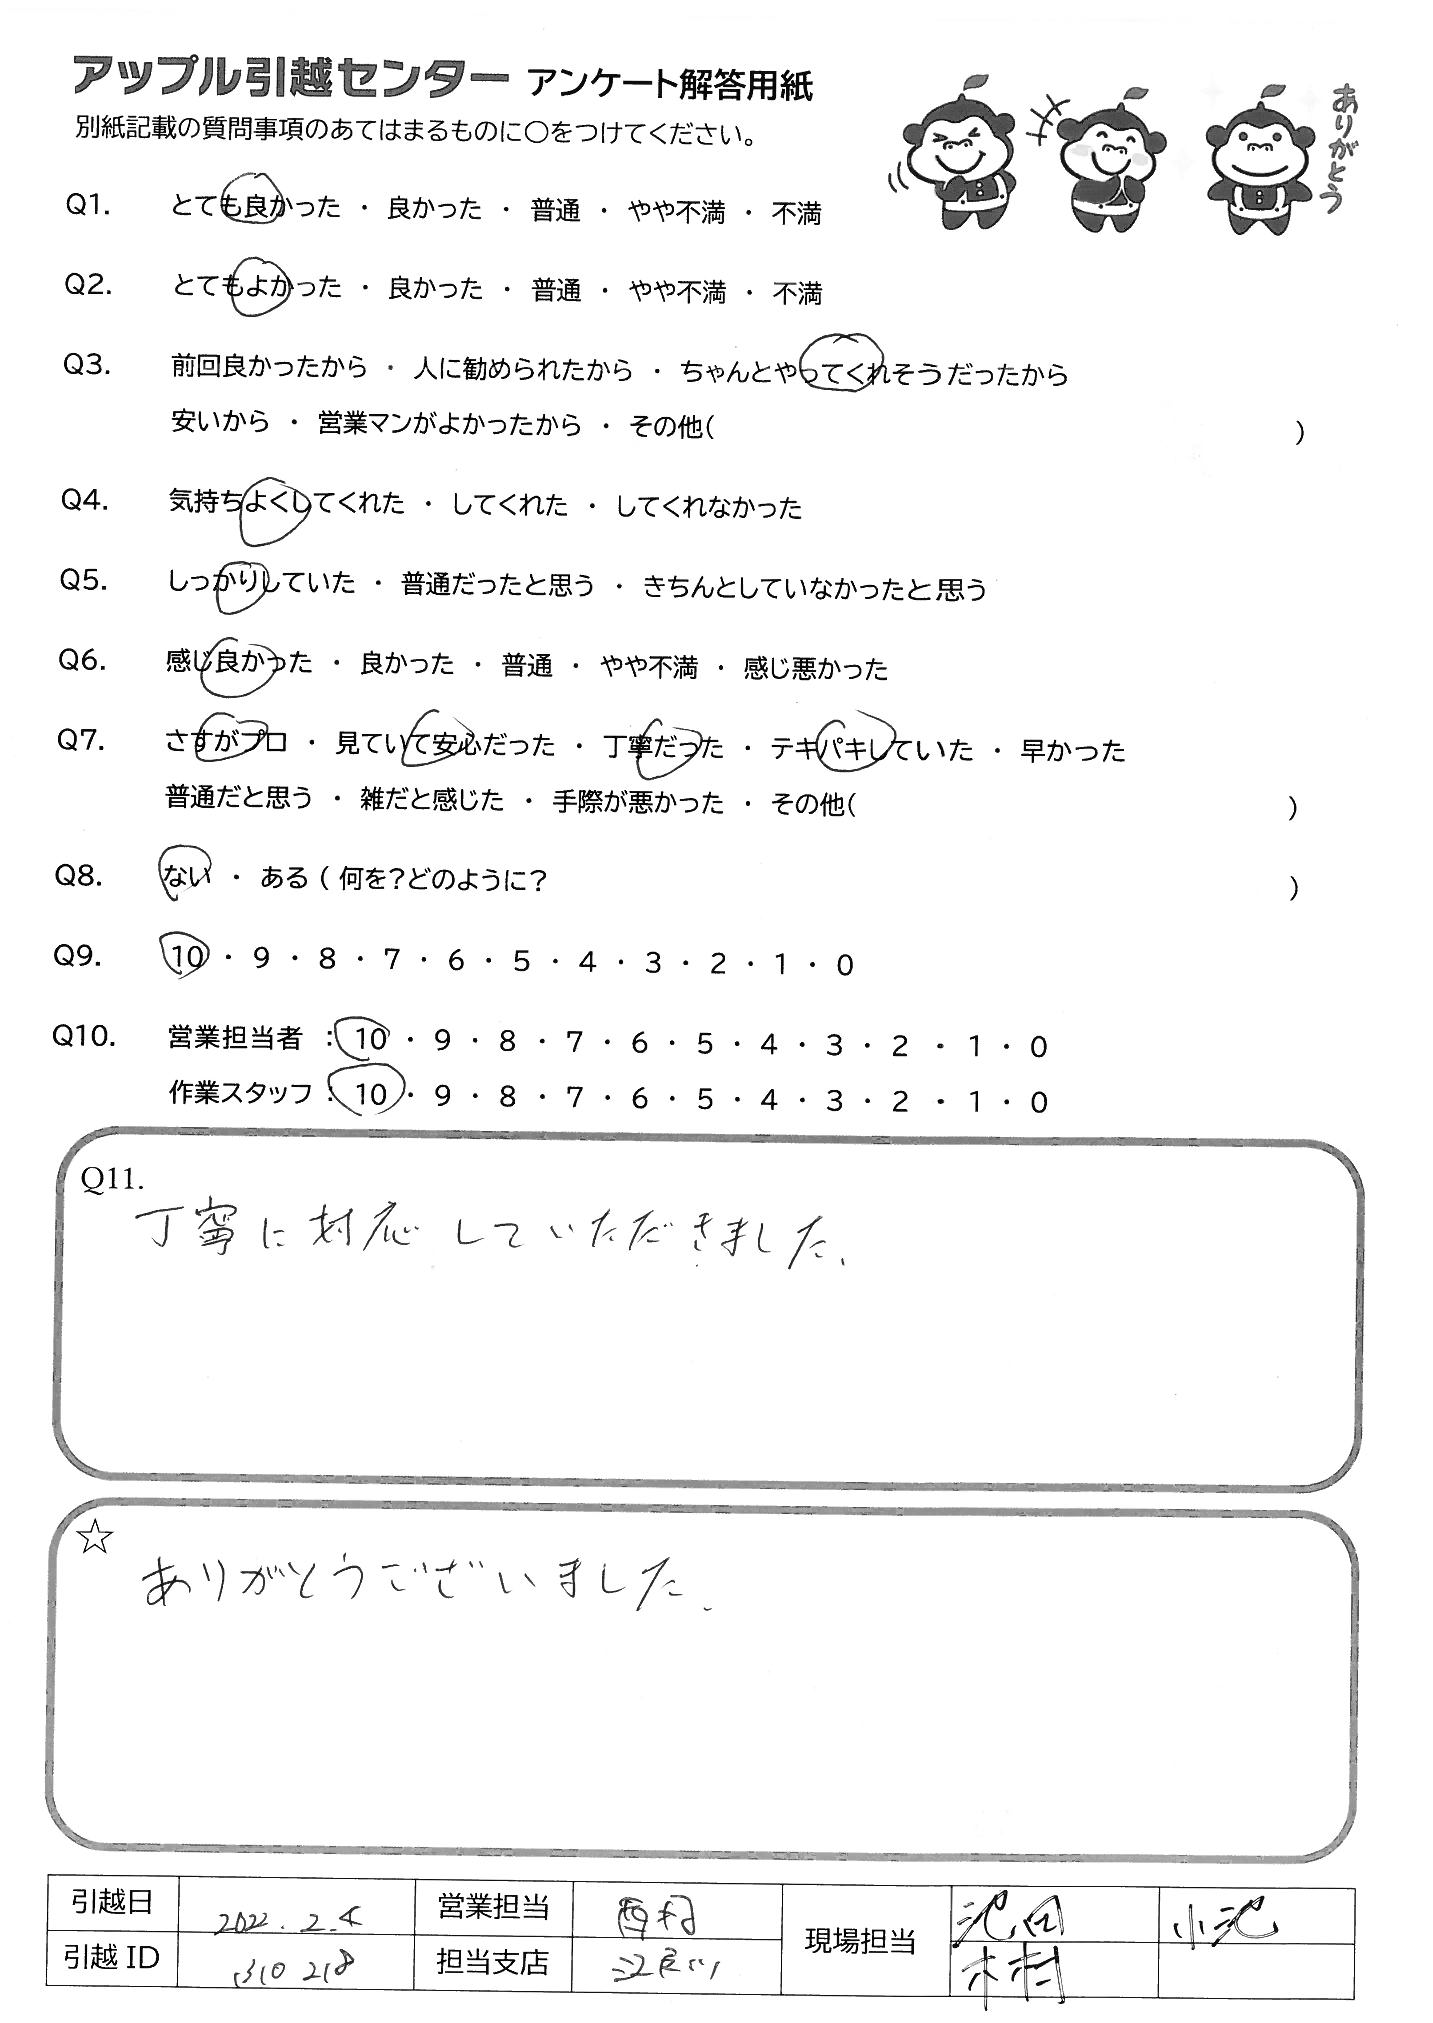 アップル引越センター アンケート解答用紙
別紙記載の質問事項のあてはまるものに〇をつけてください。
ありがとう
Q1. とても良かった ・ 良かった ・ 普通 ・ やや不満 ・ 不満
Q2. とてもよかった ・ 良かった ・ 普通 ・ やや不満 ・ 不満
Q3. 前回良かったから ・ 人に勧められたから ・ ちゃんとやってくれそうだったから
安いから ・ 営業マンがよかったから ・ その他( )
Q4. 気持ちよくしてくれた ・ してくれた ・ してくれなかった
Q5. しっかりしていた ・ 普通だったと思う ・ きちんとしていなかったと思う
Q6. 感じ良かった ・ 良かった ・ 普通 ・ やや不満 ・ 感じ悪かった
Q7. さすがプロ ・ 見ていて安心だった ・ 丁寧だった ・ テキパキしていた ・ 早かった
普通だと思う ・ 雑だと感じた ・ 手際が悪かった ・ その他( )
Q8. ない ・ ある ( 何を?どのように? )
Q9. 10 ・ 9 ・ 8 ・ 7 ・ 6 ・ 5 ・ 4 ・ 3 ・ 2 ・ 1 ・ 0
Q10. 営業担当者 : 10 ・ 9 ・ 8 ・ 7 ・ 6 ・ 5 ・ 4 ・ 3 ・ 2 ・ 1 ・ 0
作業スタッフ : 10 ・ 9 ・ 8 ・ 7 ・ 6 ・ 5 ・ 4 ・ 3 ・ 2 ・ 1 ・ 0
Q11.
丁寧に対応していただきました.
☆
ありがとうございました.
引越日 2022.2.4 営業担当 現場担当 池田 小池
引越 ID 担当支店 木村